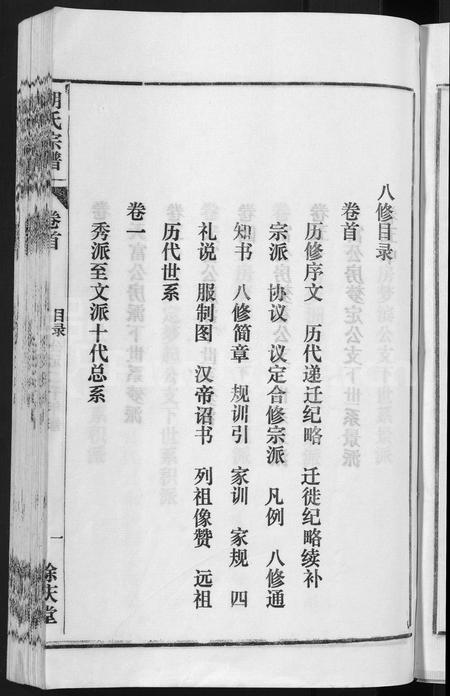 八修目录
卷首
历修序文 历代递迁纪略 迁徙纪略续补
宗派 协议 议定合修宗派 凡例 八修通
知书 八修简章 规训引 家训 家规 四
礼说 服制图 汉帝诏书 列祖像赞 远祖
历代世系
卷一
秀派至文派十代总系
胡氏宗谱 卷首 目录 一 余庆堂